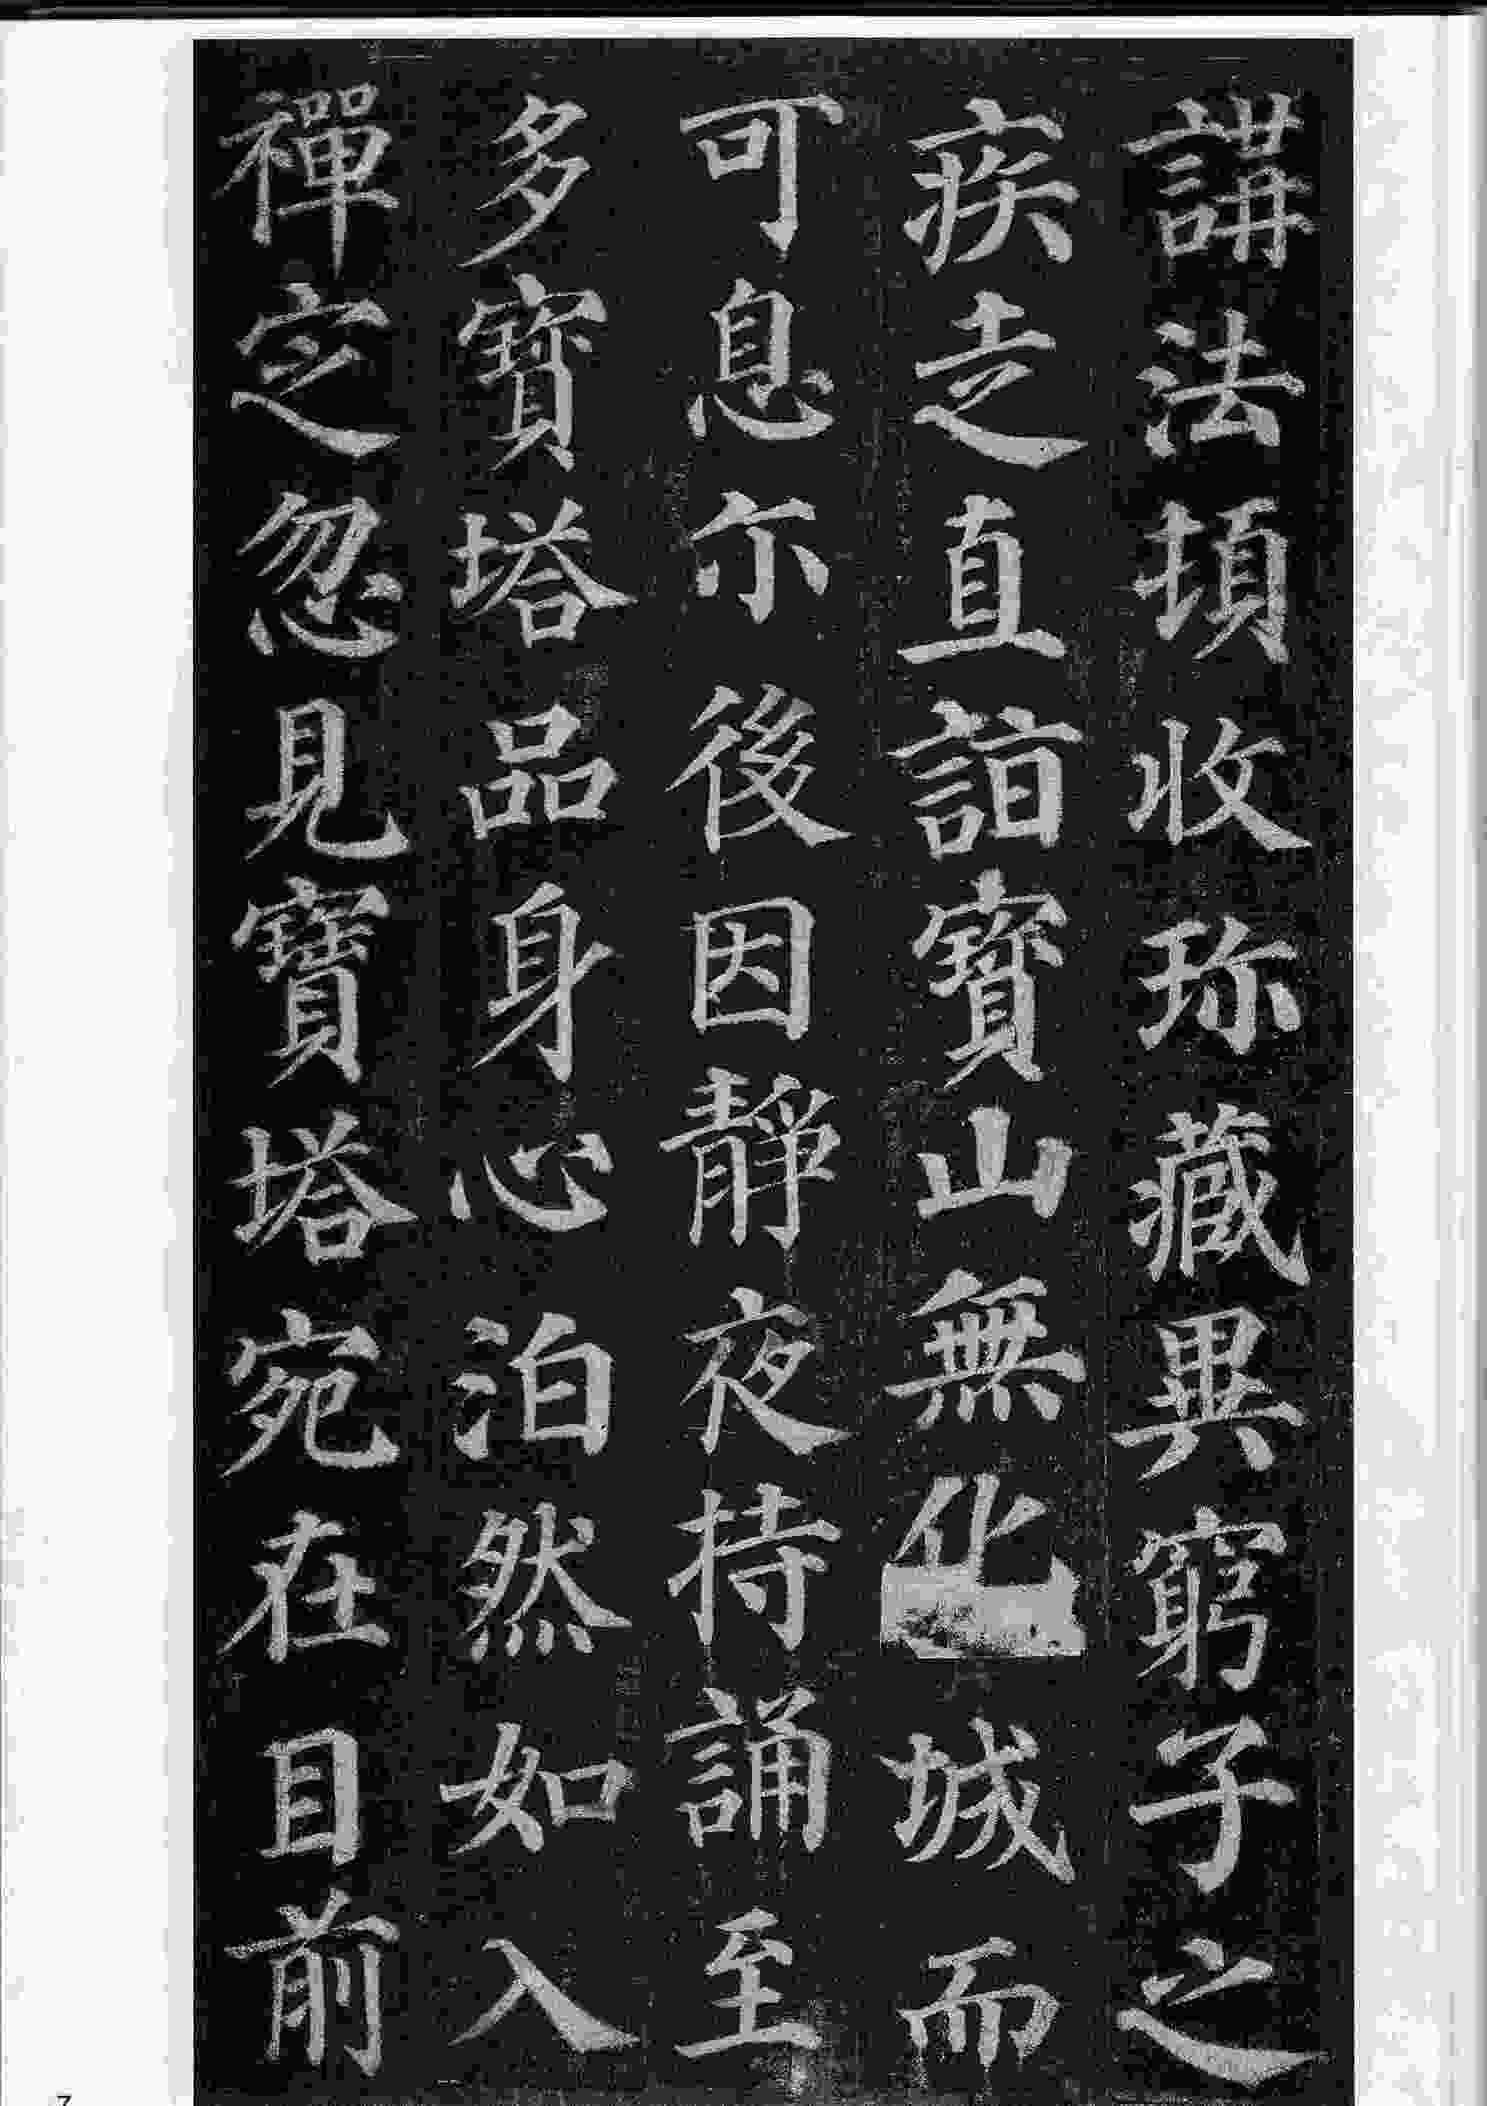 講法頓收珎藏異窮子之
疾走直詣寶山無化城而
可息尒後因靜夜持誦至
多寶塔品身心泊然如入
禪定忽見寶塔宛在目前
7